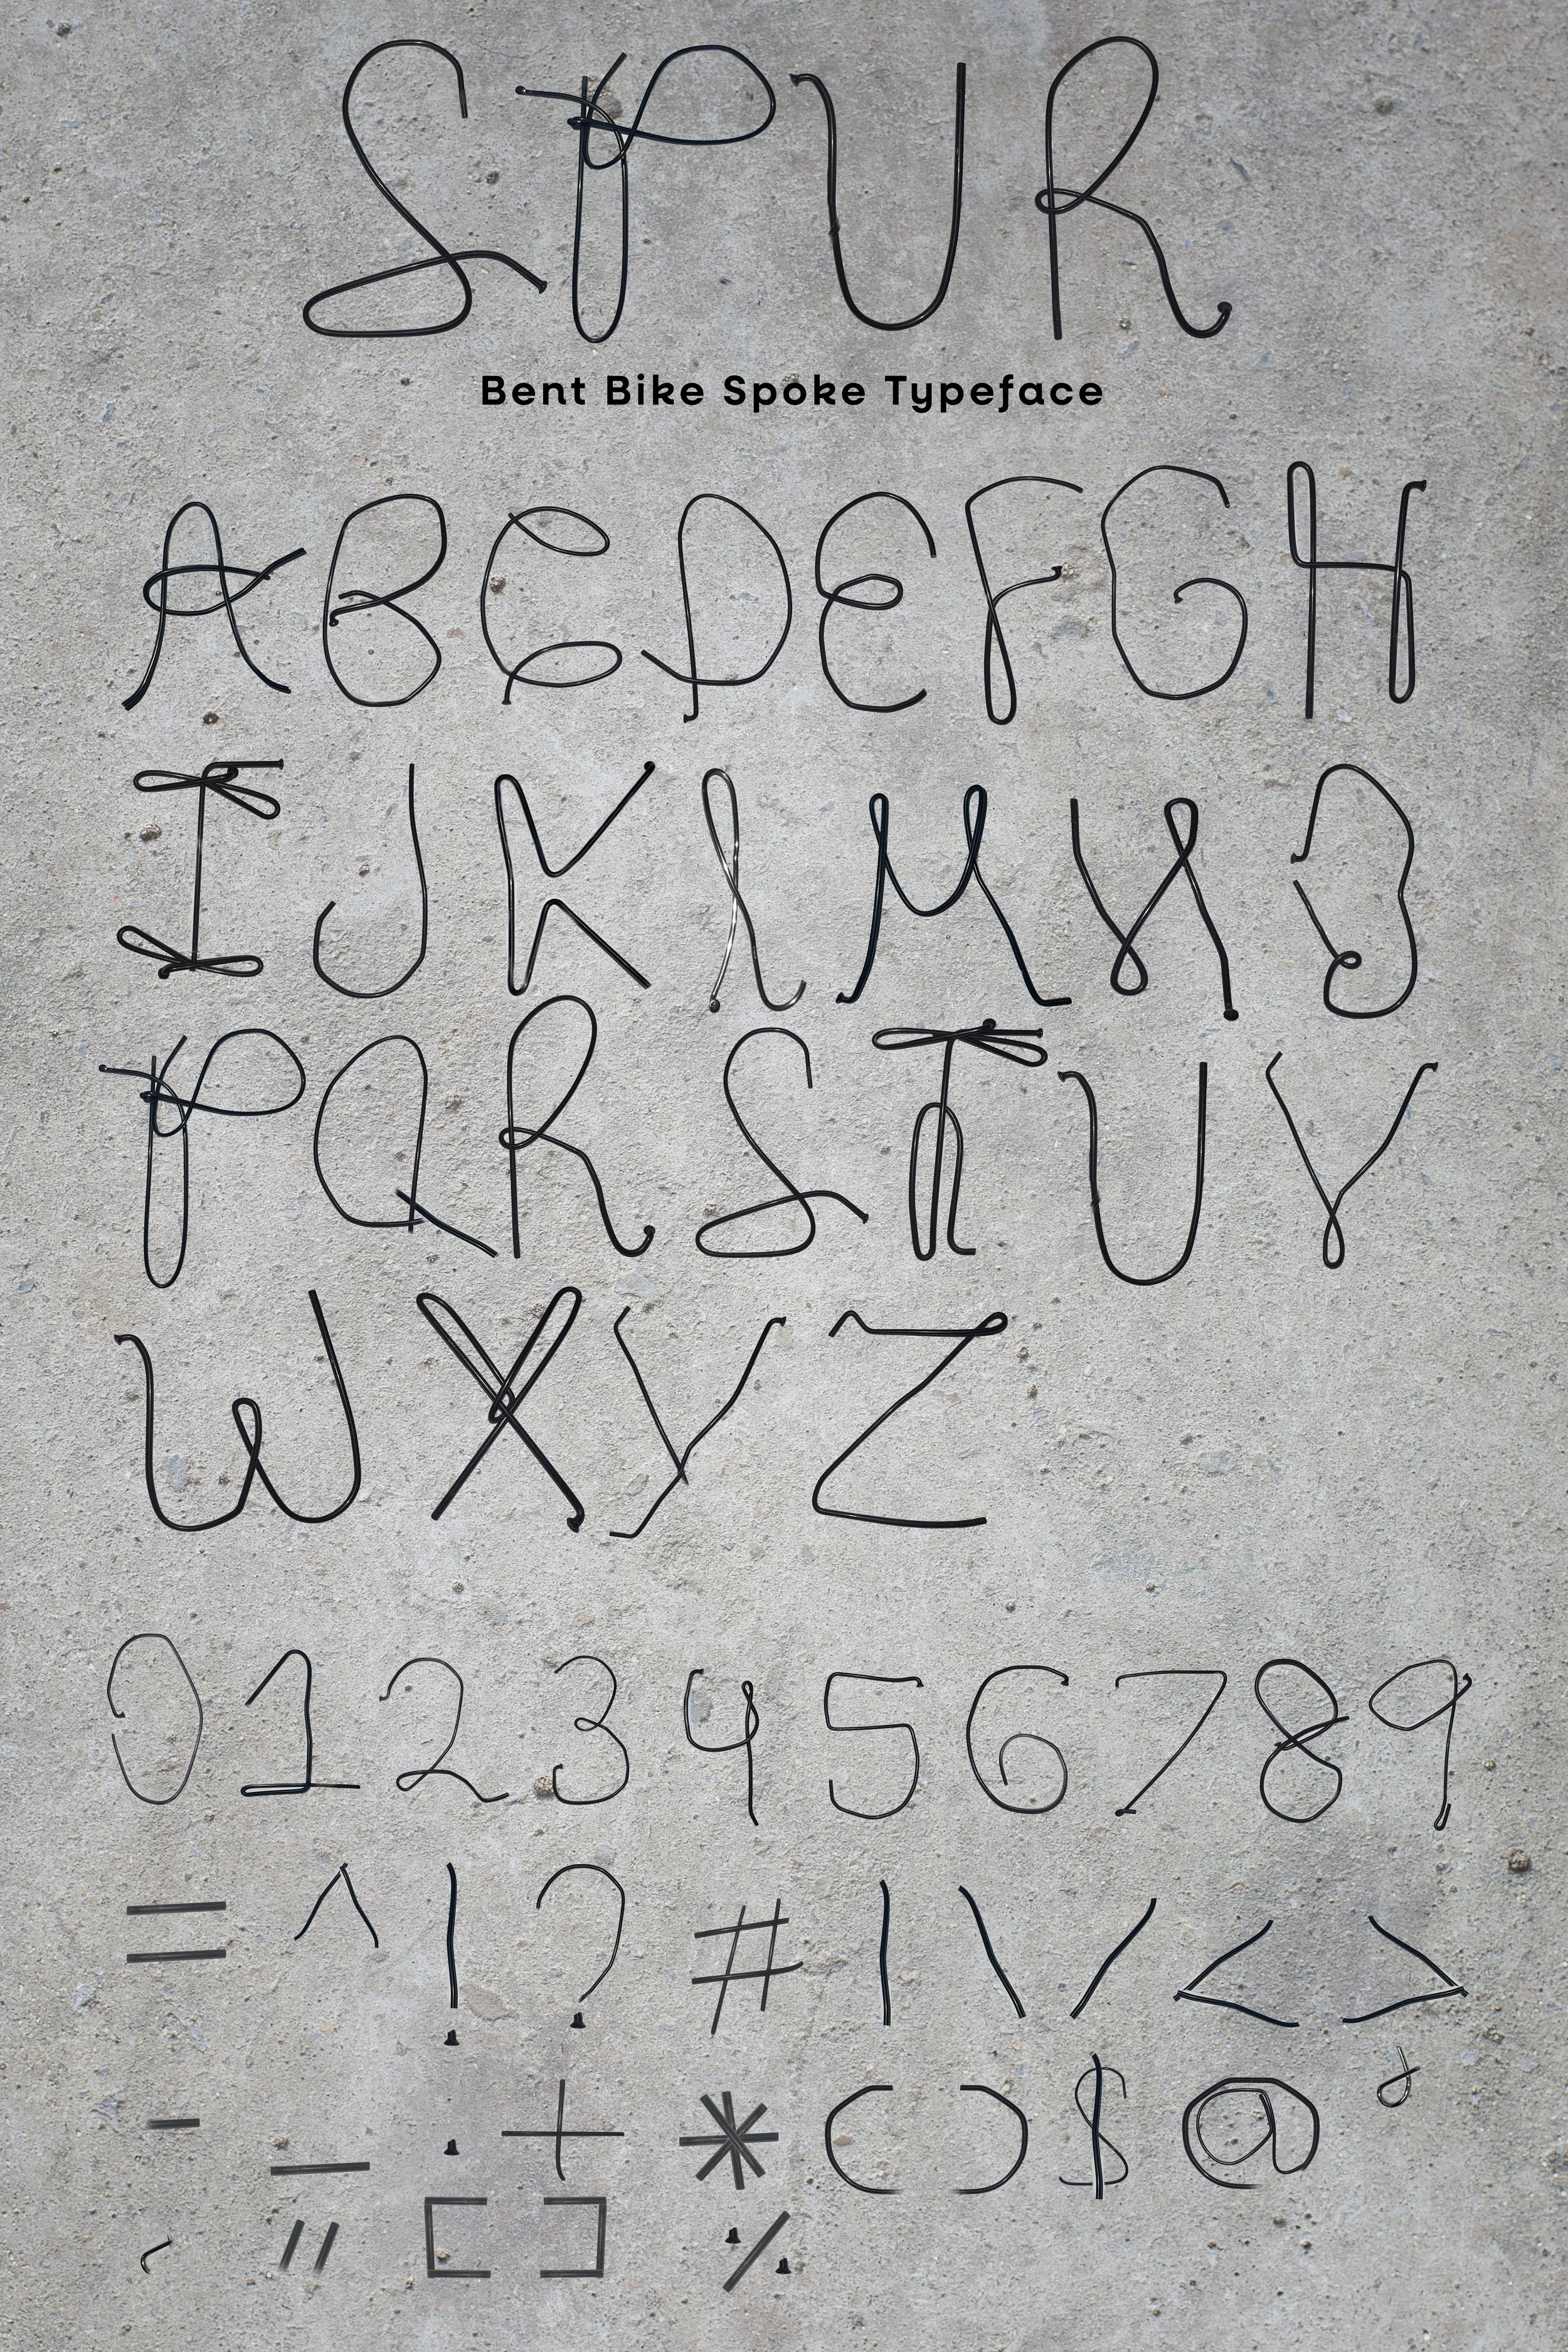 SPUR
Bent Bike Spoke Typeface
A B C D E F G H
I J K L M N O
P Q R S T U V
W X Y Z
0 1 2 3 4 5 6 7 8 9
= ^ ! ? # | \ / < >
- _ . + * ( ) $ @ '
, " [ ] %